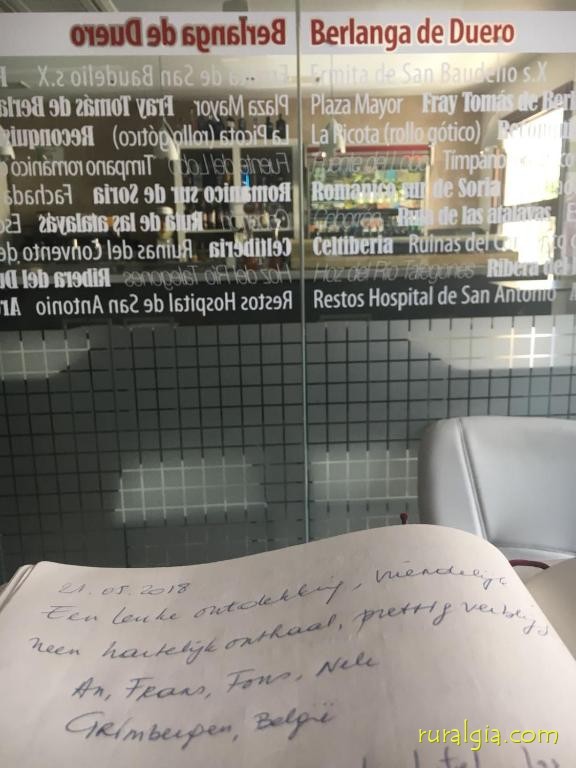 Berlanga de Duero
Ermita de San Baudelio s.X
Plaza Mayor Fray Tomás de Berl
La Picota (rollo gótico) Reconquis
Fuente del Lobo Tímpano
Románico sur de Soria
Ruta de las atalayas
Celtiberia Ruinas del
Hoz del Río Talegones Ribera del
Restos Hospital de San Antonio
21.05.2018
Een leuke ontdekking, vriendelijk
heen hartelijk onthaal, prettig verblijf,
An, Frans, Fons, Nele
Grimbergen, België
ruralgia.com